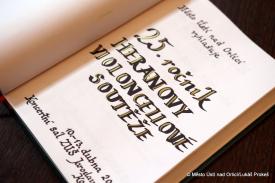 Město Ústí nad Orlicí
vyhlašuje
25. ročník
HERANOVY
VIOLONCELLOVÉ
SOUTĚŽE
10.-13. dubna 20
Koncertní sál ZUŠ Jaroslava
© Město Ústí nad Orlicí/Lukáš Prokeš